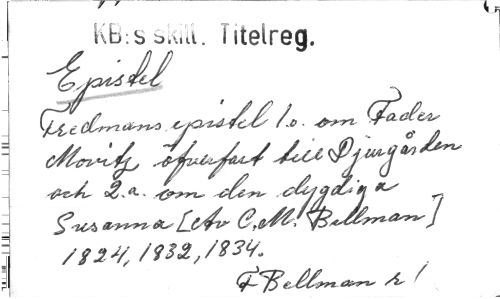 KB:s skill. Titelreg.
Epistel
Fredmans epistel 1.o. om Fader
Movitz öfverfart till Djurgården
och 2.a. om den dygdiga
Susanna [Av C.M. Bellman]
1824, 1832, 1834.
F Bellman